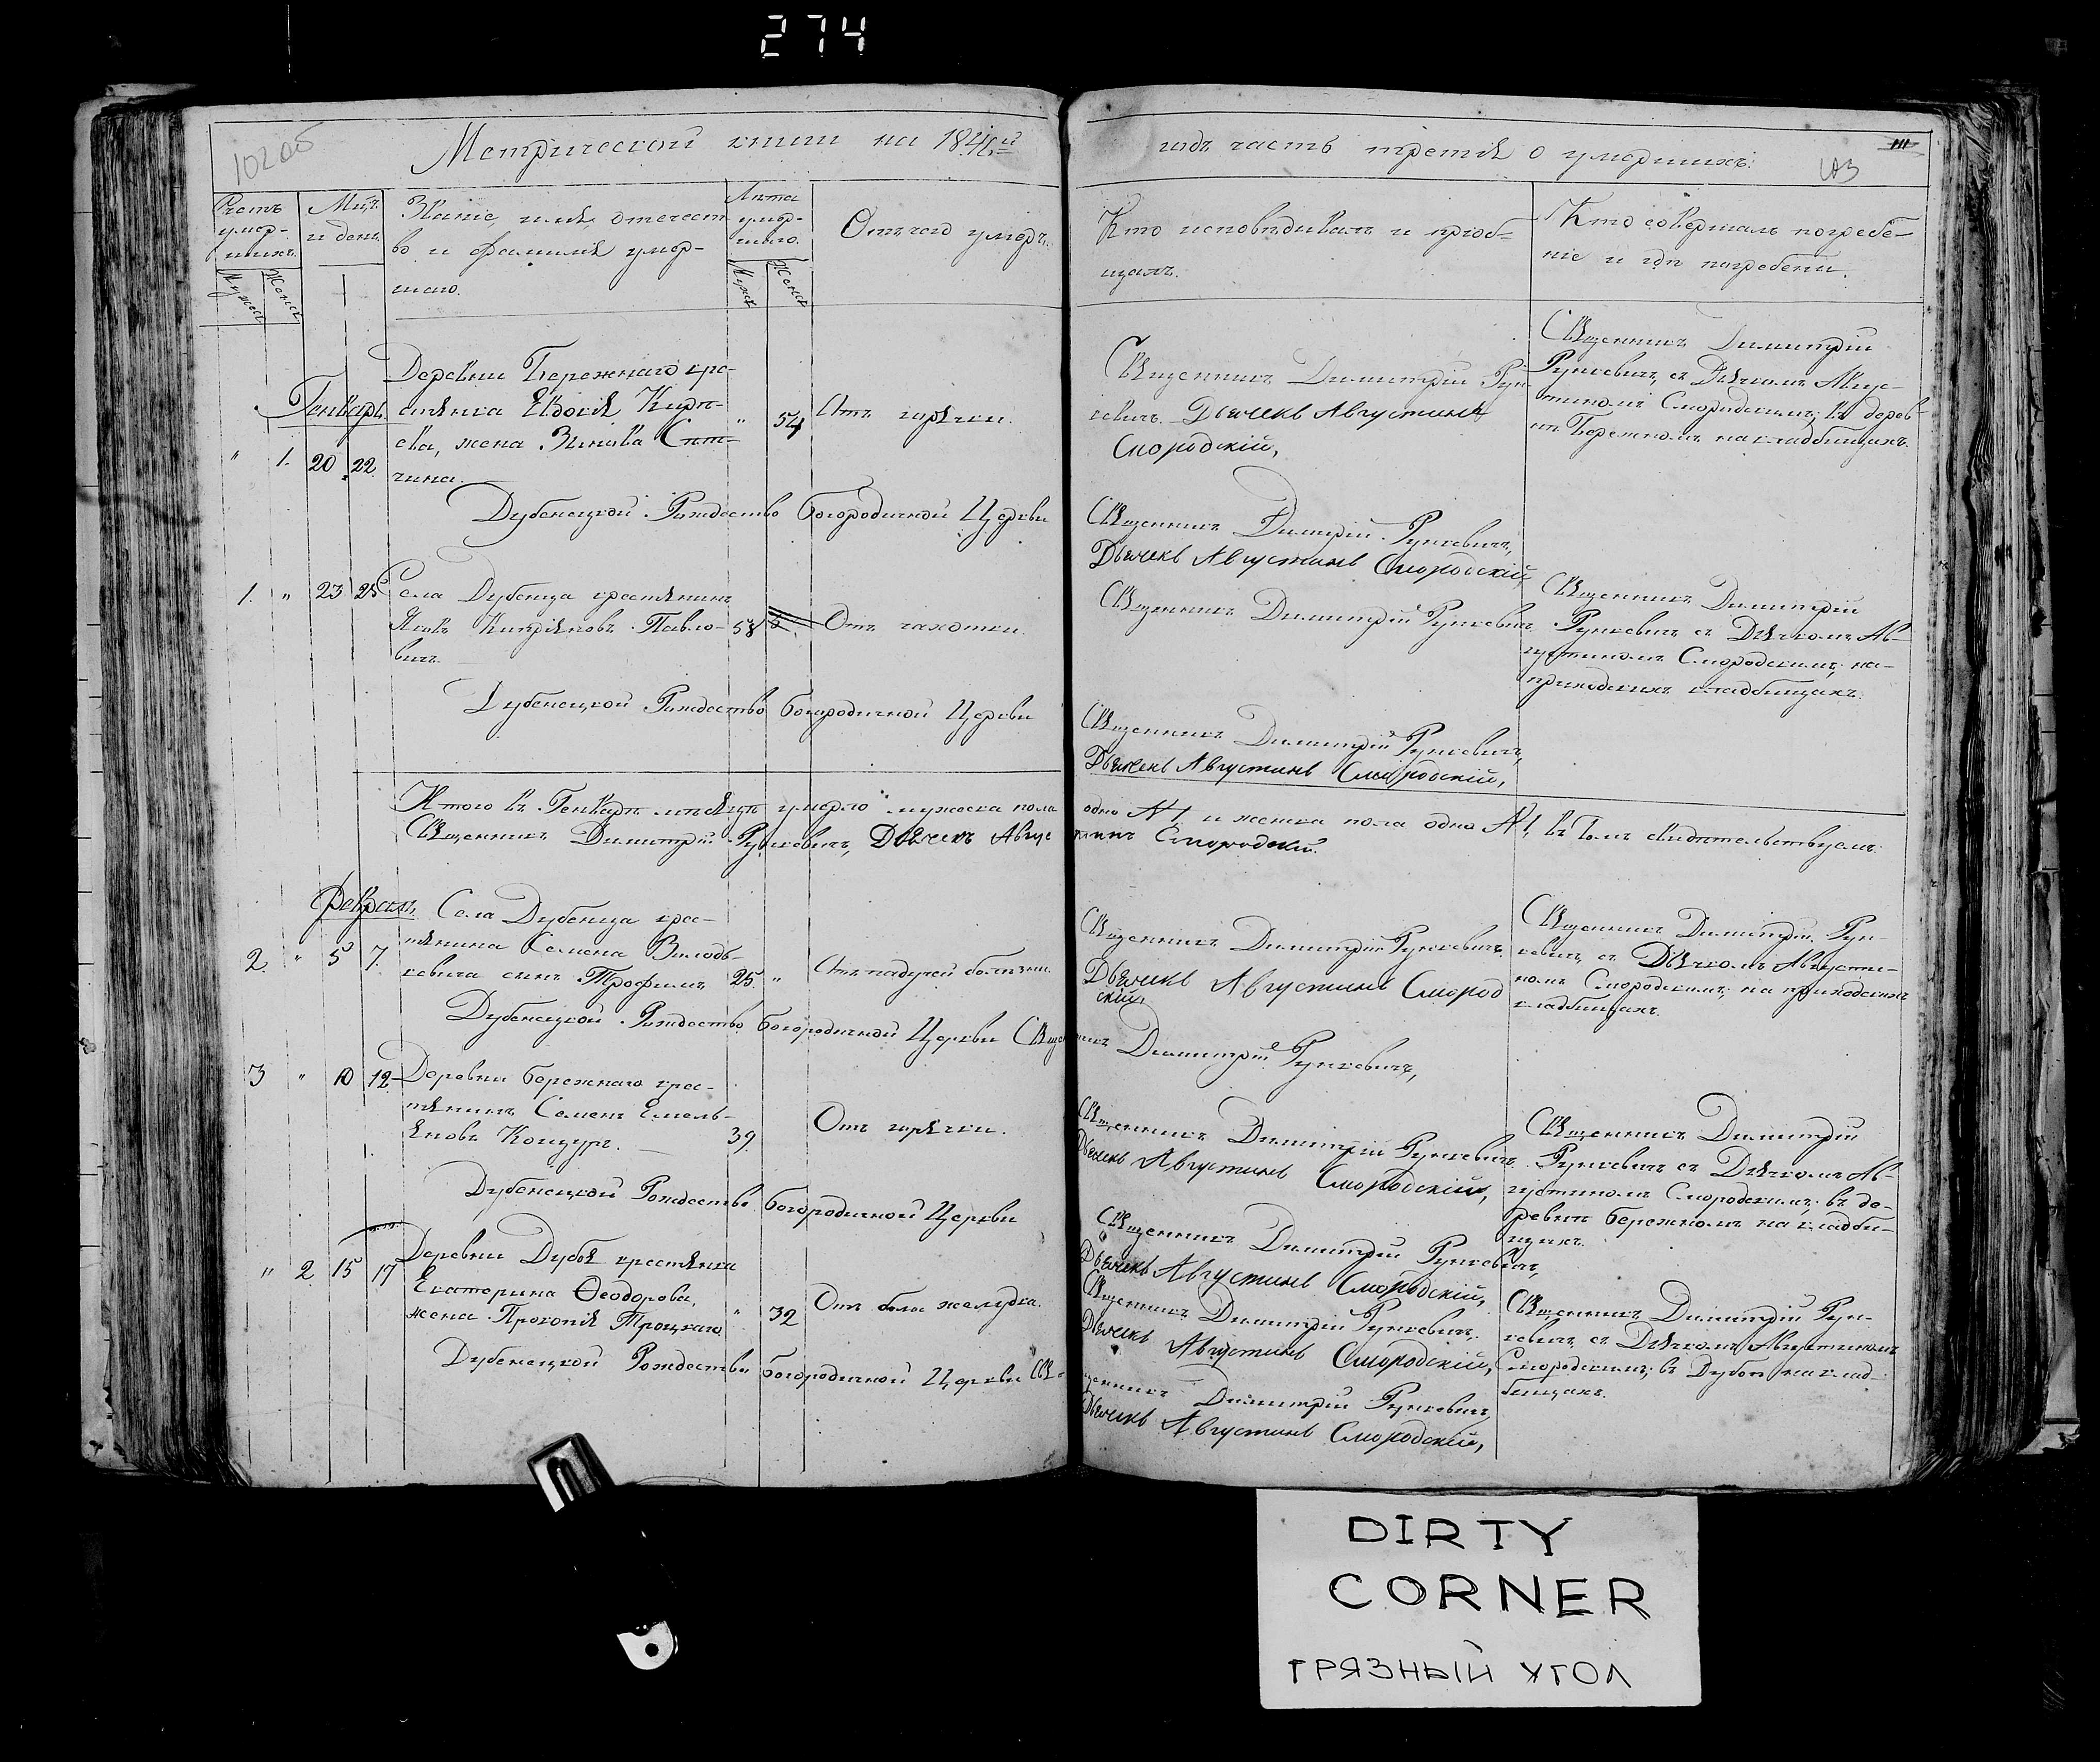 274
102 об
Метрической книги на 184 й
годъ часть третія о умершихъ:
103
Счетъ умер-шихъ.
Мужеск
Женск
Мцъ и день.
Званіе, имя, отечест-
во и фамилія умер-
шаго.
Лѣта умер-шаго.
Мужск
Женск
Отъ чего умеръ.
Кто исповѣдывалъ и пріоб-
щалъ.
Кто совершалъ погребе-
ніе и гдѣ погребены.
Генварь.
" 1. 20 22.
Деревни Бережнаго кре-
стянка Евдокія Кирѣ-
ева, жена Зѣновія
" 54
Отъ горячки.
Священникъ Димитрій Рун
кевичъ. Дьячекъ Августинъ
Смородскій,
Священникъ Димитрій
Рункевичъ, съ Дьячкомъ Авгус-
тиномъ Смородскимъ; въ дерев-
нѣ Бережномъ на кладбищахъ.
Дубенецкой Рождество Богородичной Церкви
Священникъ Димитрій Рункевичъ,
Дьячекъ Августинъ Смородскій
1. " 23 25
Села Дубенца крестянинъ
Яковъ Кипріяновъ Павло-
вичъ.
58
Отъ чахотки.
Священникъ Димитрій Рункевичъ
Священникъ Димитрій
Рункевичъ съ Дьячкомъ Ав-
густиномъ Смородскимъ; на
приходскихъ кладбищахъ.
Дубенецкой Рождество Богородичной Церкви
Священникъ Димитрій Рункевичъ,
Дьячекъ Августинъ Смородскій,
Итого въ Генварѣ мѣсяцѣ умерло мужеска пола одно №1. и женска пола одно №1, въ томъ свидѣтельствуемъ.
Священникъ Димитрій Рункевичъ, Дьячекъ Августинъ Смородскій.
Февраль.
2. " 5 7.
Села Дубенца крес-
тянина Семена Вилодъ-
кевича сынъ Трофимъ
25. "
Отъ падучей болѣзни.
Священникъ Димитрій Рункевичъ.
Дьячекъ Августинъ Смород
скій,
Священникъ Димитрій Рун-
кевичъ, съ Дьячкомъ Августи-
номъ Смородскимъ; на приходскихъ
кладбищахъ.
Дубенецкой Рождество Богородичной Церкви Священникъ Димитрій Рункевичъ,
3 " 10 12
Деревни Бережнаго крес-
тянинъ Семенъ Емель-
яновъ Конщуръ.
39.
Отъ горячки.
Священникъ Димитрій Рункевичъ.
Дьячекъ Августинъ Смородскій,
Священникъ Димитрій
Рункевичъ съ Дьячкомъ Ав-
густиномъ Смородскимъ; въ де-
ревнѣ Бережномъ на кладби-
щахъ.
Дубенецкой Рождество Богородичной Церкви
Священникъ Димитрій Рункевичъ,
Дьячекъ Августинъ Смородскій,
" 2 15 17
Деревни Дубоя крестянка
Екатерина Ѳеодорова,
жена Прокопія Троцкаго
" 32
Отъ боли желудка.
Священникъ Димитрій Рункевичъ.
Дьячекъ Августинъ Смородскій,
Священникъ Димитрій Рун-
кевичъ, съ Дьячкомъ Августиномъ
Смородскимъ; въ Дубоѣ на клад-
бищахъ.
Дубенецкой Рождество Богородичной Церкви Свя-
щенникъ Димитрій Рункевичъ
Дьячекъ Августинъ Смородскій,
DIRTY
CORNER
ГРЯЗНЫЙ УГОЛ